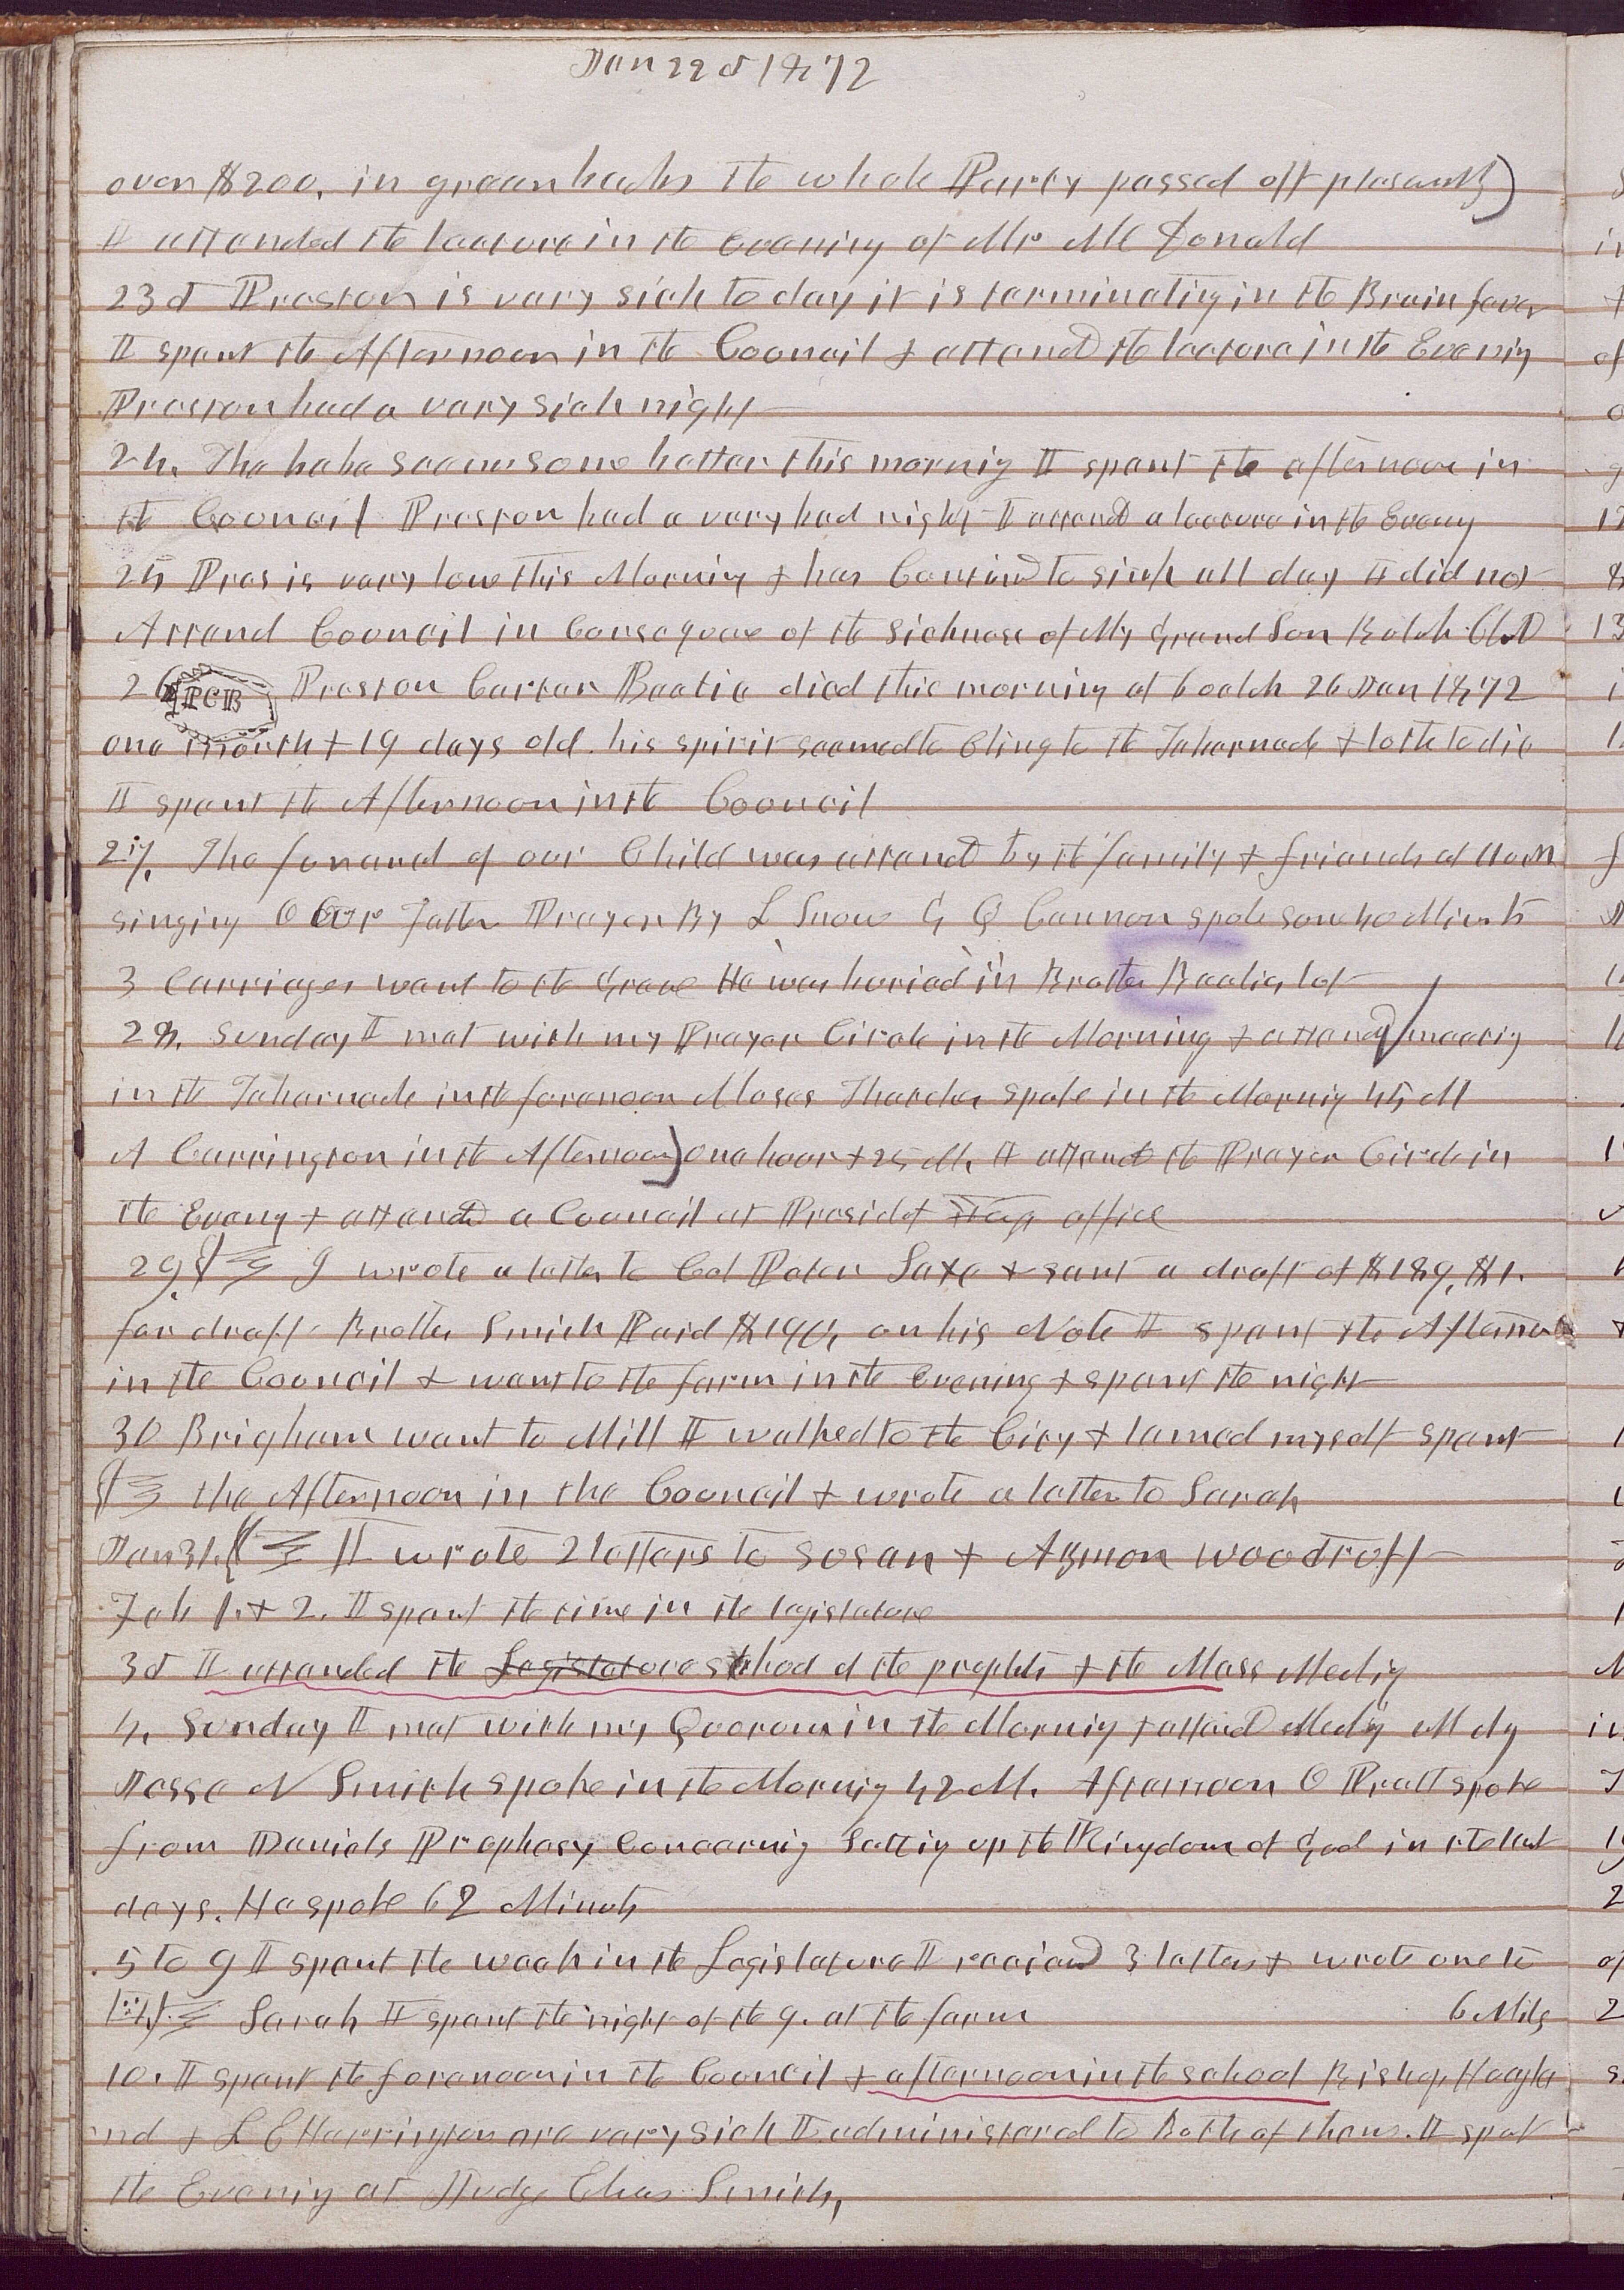 Jan 22d 1872
over $200, in greenbacks the whole Party passed off plesantly)
I attended the lecture in the Evening of Mr McDonald
23d Preston is very sick to day it is terminatig in the Brain fever
I spent the Afternoon in the Council & attend the lecture in the Evenig
Preston had a very sick night
24. The babe seems some better this mornig I spent the afternoon in
the Council Preston had a very bad night I attend a lecture in the Eveng
25 Pres is very low this Mornig & has Continud to sink all day I did not
Attend Council in Consequence of the sickness of My Grand Son
26 PCB Preston Carter Beatie died this morning at 6 oclok 26 Jan 1872
one month & 19 days old. his spirit seemed to Cling to the Tabernacle & loth to die
I spent the Afternoon in the Council
27. The funeral of our Child was attend by the family & friends at
singing O Our Father Prayer By L Snow G Q Cannon spoke some 40 Minuts
3 Carriages went to the Grave He was buried in Brother Beaties lot
28. Sunday I met with my Prayer Circle in the Morning & attend meetig
in the Tabernacle in the forenoon Moses Thatcher spoke in the Mornig 45 M
A Carrington in the Afternoon) one hour & 25 M. I attend the Prayer Circle in
the Eveng & attend a Council at Presidet office
29. I wrote a letter to Col Peter Saxe & sent a draft of $189, $1.
for draft Brother Smith Paid $190, on his Note I spent the Afternoon
in the Council & went to the farm in the Evening & spent the night
30 Brigham went to Mill I walked to the City & lamed myself spent
the Afternoon in the Council & wrote a letter to Sarah
Jan 31. I wrote 2 letters to Susan & Azmon Woodruff
Feb 1. & 2. I spent the time in the legislature
3d I attended the Legislature school of the prophets & the Mass Meetig
4, Sunday I met with my Quorum in the Mornig & attend Meetig
Jesse N Smith spoke in the Mornig 42 M. Afternoon O Pratt spoke
from Daniels Prophesy Concernig Settig up the Kingdom of God in the last
days. He spoke 62 Minuts
5 to 9 I spent the week in the Legislature I receievd 3 letters & wrote one to
Sarah I spent the night of the 9. at the farm 6 Mils
10. I spent the forenoon in the Council & afternoon in the school Bishop Hoagla
nd & L E Harrington are very sick I administered to Both of them. I spet
the Evenig at Judge Elias Smith,